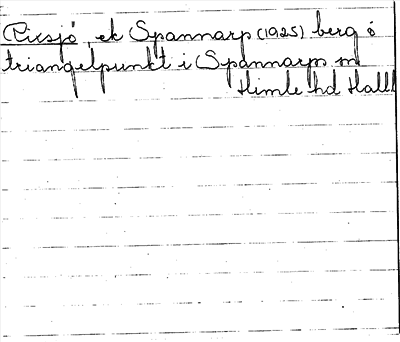 Ricsjö, ek Spannarp (1925) berg o
triangelpunkt i Spannarps sn
Himle hd Hall